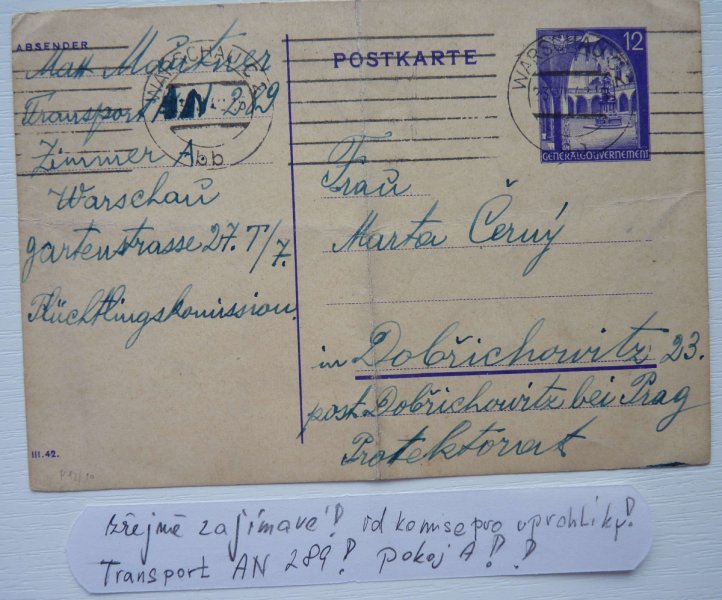 ABSENDER
Max Mautner
Transport AN. 289
Zimmer A
Warschau
gartenstrasse 27. T/7.
Flüchtlingskomission
III.42.
POSTKARTE
12
GENERALGOUVERNEMENT
WARSCHAU
WARSCHAU
Frau
Marta Černý
in Dobřichowitz 23.
post. Dobřichowitz bei Prag
Protektorat
zřejmě zajímavé! od komise pro uprchlíky!
Transport AN 289! pokoj A!!